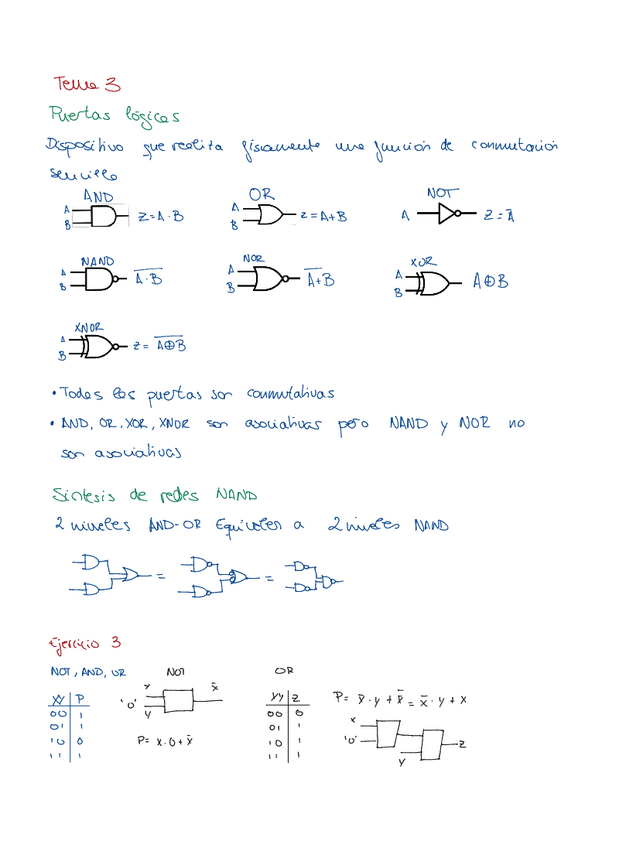 Tema 3
Puertas lógicas
Dispositivo que realiza físicamente una función de conmutación
sencilla
AND OR NOT
A B Z = A · B A B Z = A+B A Z = A̅
NAND NOR XOR
A B \overline{A · B} A B \overline{A+B} A B A⊕B
XNOR
A B Z = \overline{A⊕B}
• Todas las puertas son conmutativas
• AND, OR, XOR, XNOR son asociativas pero NAND y NOR no
son asociativas
Síntesis de redes NAND
2 niveles AND-OR Equivalen a 2 niveles NAND
= =
Ejercicio 3
NOT, AND, OR NOT OR
XY P
00 1
01 1
10 0
11 1
'0' Y x̅
P = x·0+x̅
YY Z
00 0
01 1
10 1
11 1
P = x̅·y + x̿ = x̅·y + x
x '0' Y Z